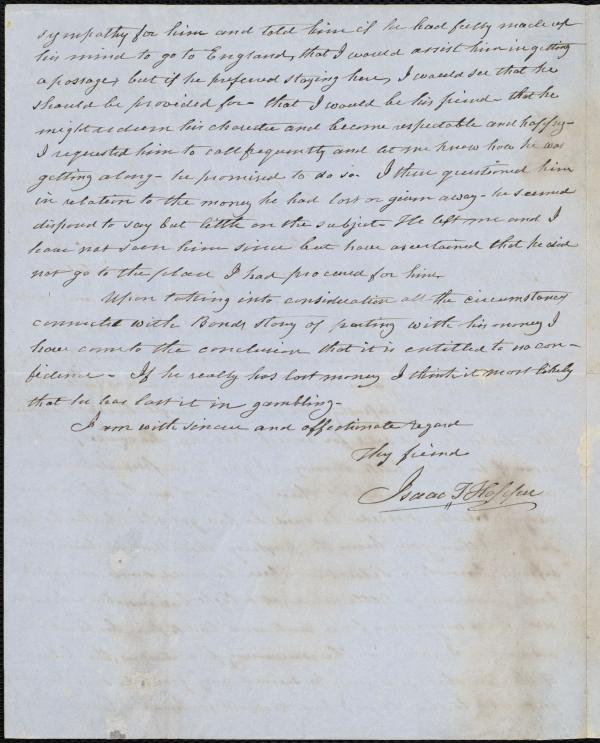 sympathy for him and told him if he had fully made up
his mind to go to England, that I would assist him in getting
a passage, but if he preferred staying here, I would see that he
should be provided for - that I would be his friend - that he
might redeem his character and become respectable and happy -
I requested him to call frequently and let me know how he was
getting along - he promised to do so. I then questioned him
in relation to the money he had lost or given away - he seemed
disposed to say but little on the subject - He left me and I
have not seen him since but have ascertained that he did
not go to the place I had procured for him.
Upon taking into consideration all the circumstances
connected with Bonds story of parting with his money I
have come to the conclusion that it is entitled to no con-
fidence - If he really has lost money I think it most likely
that he has lost it in gambling -
I am with sincere and affectionate regard
Thy friend
Isaac T Hopper